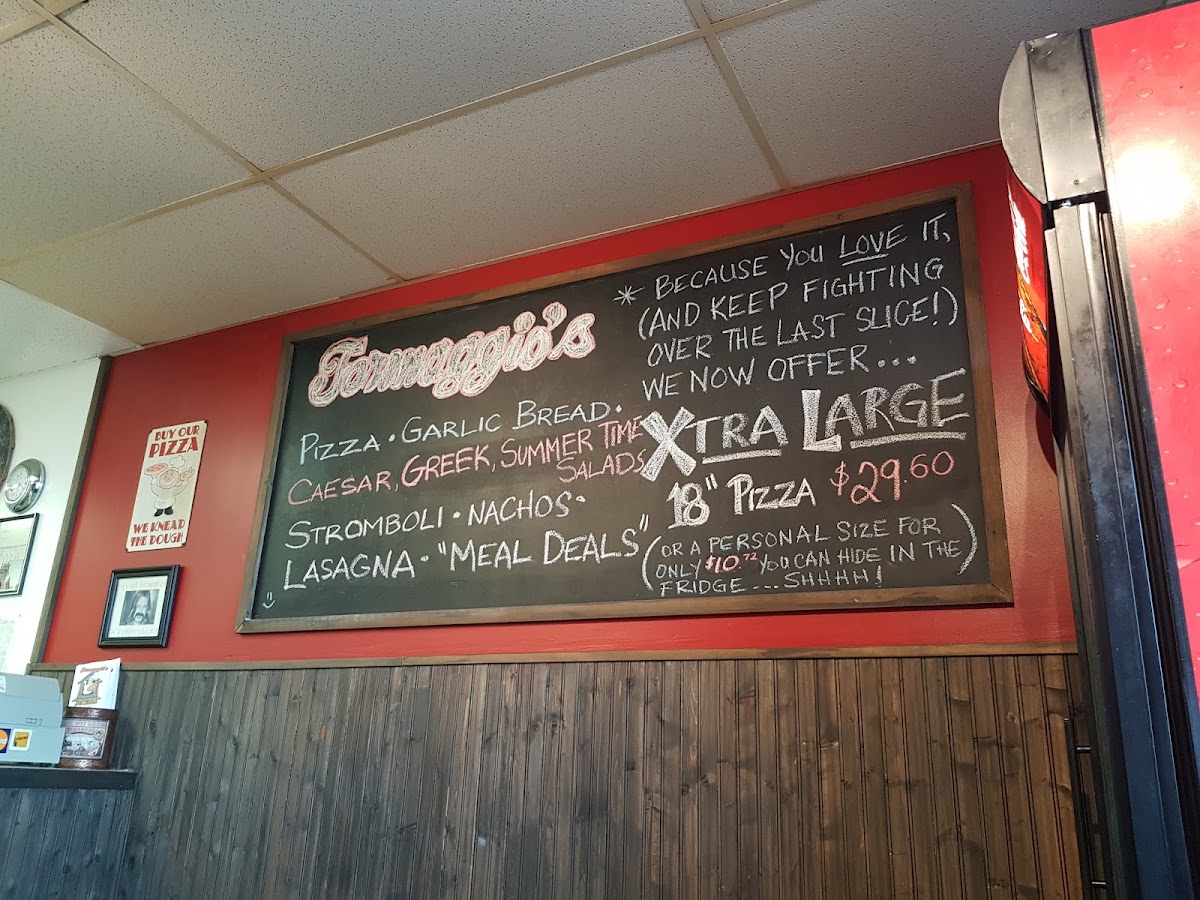 Formaggio's
PIZZA • GARLIC BREAD •
CAESAR, GREEK, SUMMER TIME
SALADS
STROMBOLI • NACHOS •
LASAGNA • "MEAL DEALS"
* BECAUSE YOU LOVE IT,
(AND KEEP FIGHTING
OVER THE LAST SLICE!)
WE NOW OFFER...
XTRA LARGE
18" PIZZA $29.60
(OR A PERSONAL SIZE FOR
ONLY $10.72 YOU CAN HIDE IN THE
FRIDGE ... SHHHH!)
BUY OUR
PIZZA
WE KNEAD
THE DOUGH